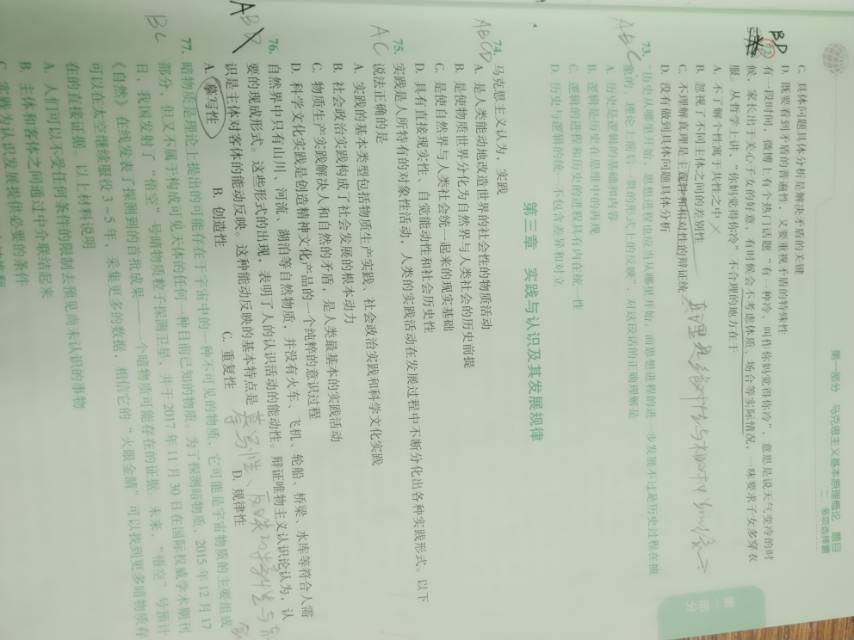 第一部分 马克思主义基本原理概论 题目
二、多项选择题
C. 具体问题具体分析是解决矛盾的关键
D. 既要看到矛盾的普遍性，又要重视矛盾的特殊性
BD
有一段时间，微博上有个热门话题“有一种冷，叫作你妈觉得你冷”，意思是说天气变冷的时
候，家长出于关心子女的好意，有时候会不考虑体质、场合等实际情况，一味要求子女多穿衣
服。从哲学上讲，“你妈觉得你冷”不合理的地方在于
A. 不了解个性寓于共性之中 ×
B. 忽视了不同主体之间的差别性
C. 不理解真理是
D. 没有做到具体问题具体分析
ABC
73. 历史从哪里开始，思想进程也应当从哪里开始，而思想进程的进一步发展不过是历史过程在抽
象的、理论上前后一贯的形式上的反映”，对这段话的正确理解是
A. 历史是逻辑的基础和内容
B. 逻辑是历史在思维中的再现
C. 逻辑的进程和历史的进程具有内在统一性
D. 历史与逻辑的统一不包含差异和对立
第三章 实践与认识及其发展规律
ABCD
74. 马克思主义认为，实践
A. 是人类能动地改造世界的社会性的物质活动
B. 是使物质世界分化为自然界与人类社会的历史前提
C. 是使自然界与人类社会统一起来的现实基础
D. 具有直接现实性、自觉能动性和社会历史性
AC
75. 实践是人所特有的对象性活动，人类的实践活动在发展过程中不断分化出各种实践形式。以下
说法正确的是
A. 实践的基本类型包括物质生产实践、社会政治实践和科学文化实践
B. 社会政治实践构成了社会发展的根本动力
C. 物质生产实践解决人和自然的矛盾，是人类最基本的实践活动
D. 科学文化实践是创造精神文化产品的一个纯粹的意识过程
76. 自然界中只有山川、河流、湖泊等自然物质，并没有火车、飞机、轮船、桥梁、水库等符合人需
要的现成形式，这些形式的出现，表明了人的认识活动的能动性。辩证唯物主义认识论认为，认
识是主体对客体的能动反映，这种能动反映的基本特点是
A. 摹写性 B. 创造性 C. 重复性 D. 规律性
BC
77. 暗物质是理论上提出的可能存在于宇宙中的一种不可见的物质，它可能是宇宙物质的主要组成
部分，但又不属于构成可见天体的任何一种目前已知的物质。为了探测暗物质，2015年12月17
日，我国发射了“悟空”号暗物质粒子探测卫星，并于2017年11月30日在国际权威学术期刊
《自然》在线发表了探测到的首批成果——一个暗物质可能存在的证据。未来，“悟空”号预计
可以在太空继续服役3-5年，采集更多的数据，相信它的“火眼金睛”可以找到更多暗物质存
在的直接证据。以上材料说明
A. 人们可以不受任何条件的限制去预见尚未认识的事物
B. 主体和客体之间通过中介联结起来
C. 实践为认识发展提供必要的条件